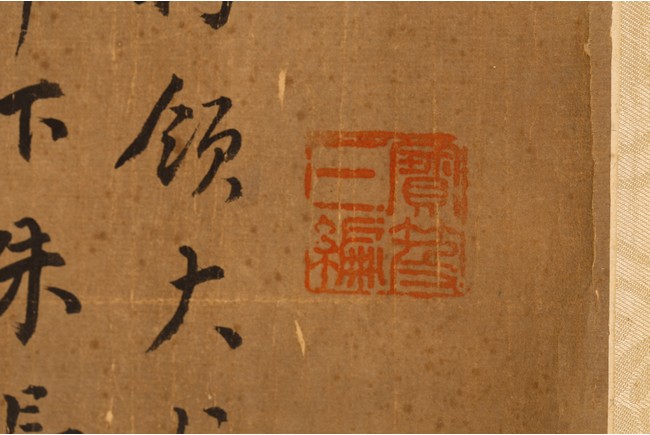 寶笈
三編
領大
下朱長